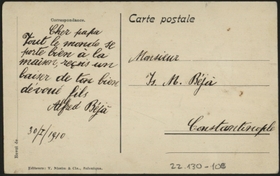 Correspondance.
Carte postale
Cher papa
Tout le monde se
porte bien à la
maison, reçois un
baiser de ton bien
dévoué fils
Alfred Béjà
30/7/1910
Monsieur
M. Béjà
Constantinople
22 130-10